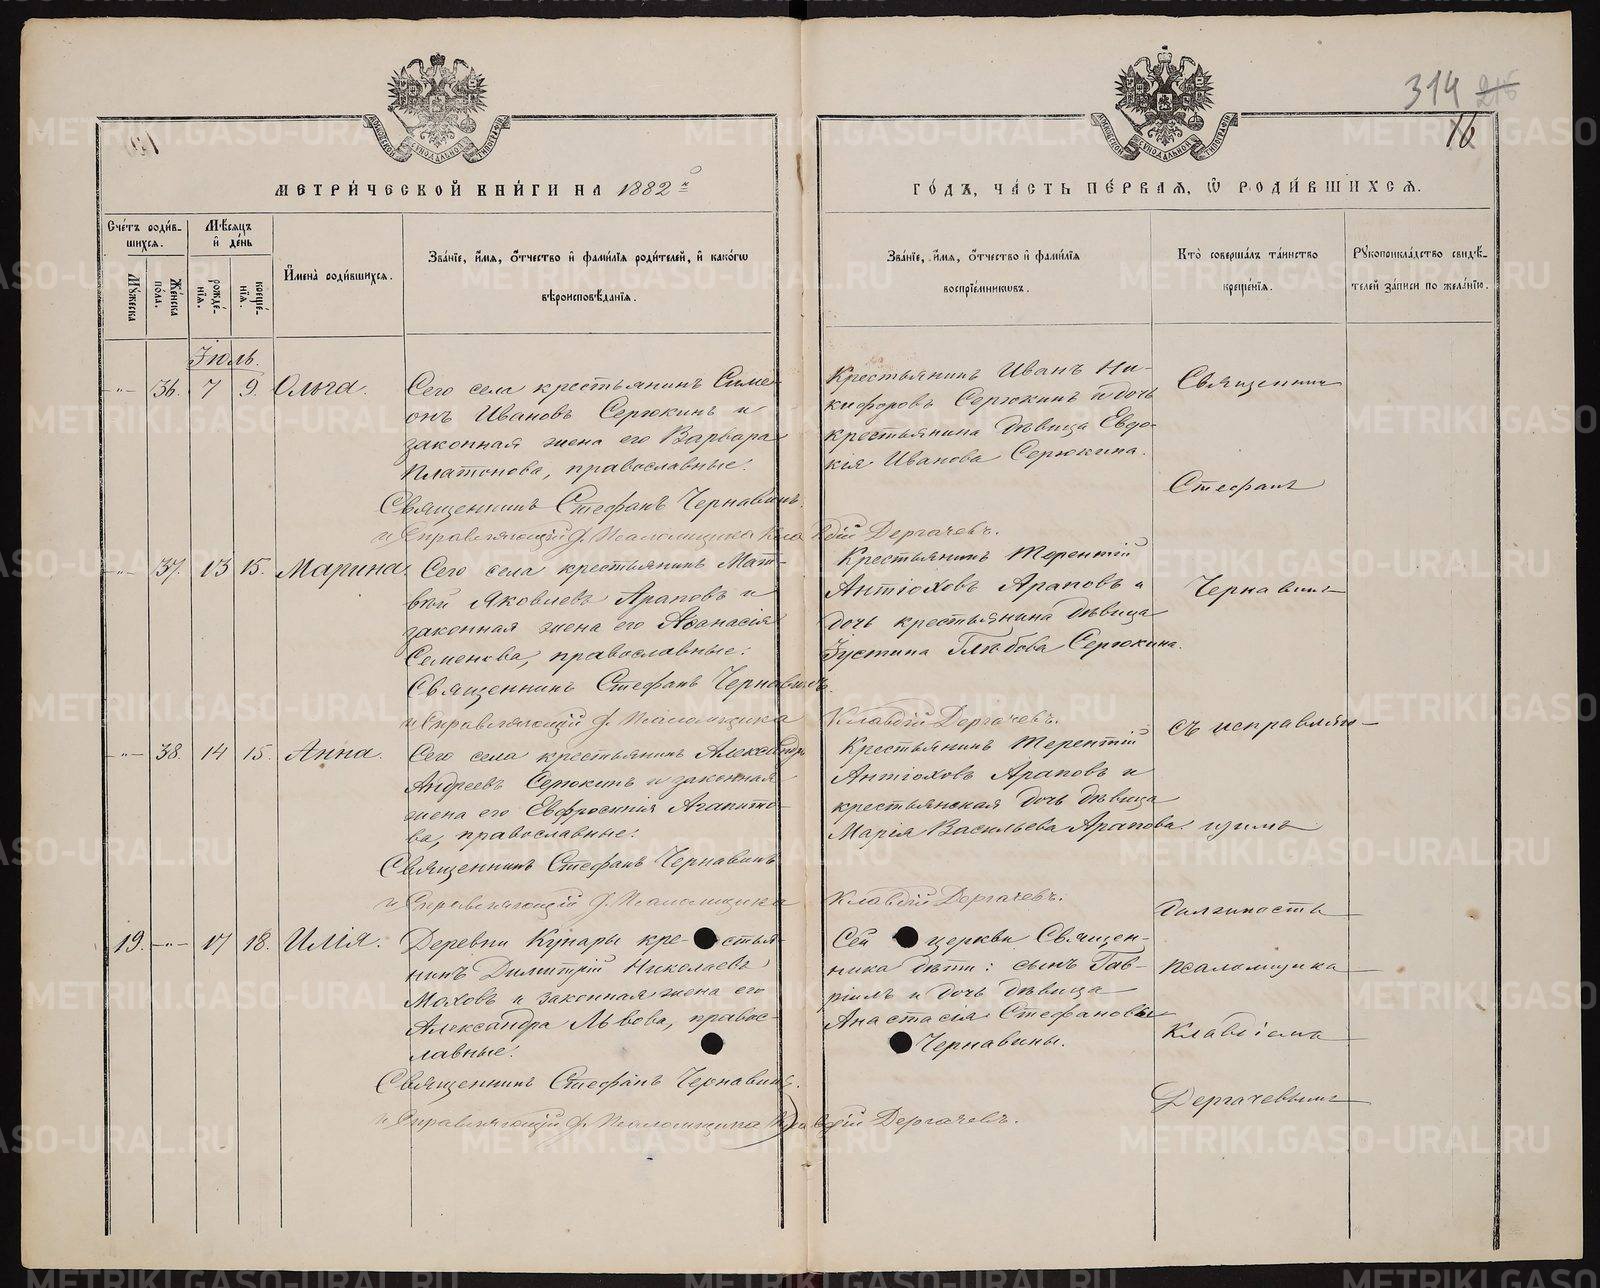 314 216
16
МОСКОВСКОЙ СѴНОДАЛЬНОЙ ТИПОГРАФІИ
МОСКОВСКОЙ СѴНОДАЛЬНОЙ ТИПОГРАФІИ
МЕТРИ́ЧЕСКОЙ КНИ́ГИ НА 1882го
ГО́ДЪ, ЧА́СТЬ ПЕ́РВАѦ, Ѽ РОДИ́ВШИХСѦ.
Сче́тъ роди́в-
шихся.
Мꙋжеска
Же́нска по́ла.
Мѣ́сяцъ и де́нь
рожде́-
нїя.
креще́-
нїя.
Имена̀ роди́вшихся.
Зва́нїе, и́мя, ѻ҆́тчество и фами́лїя роди́телей, и како́гѡ
вѣроисповѣ́данїя.
Зва́нїе, и́мя, ѻ҆́тчество и фами́лїя
воспрїе́мниковъ.
Кто̀ соверша́лъ та́инство
креще́нїя.
Рꙋкоприкла́дство свидѣ́-
телей за́писи по жела́нїю.
Іюль.
-"- 36. 7 9. Ольга.
Сего села крестьянинъ Симе-
онъ Ивановъ Серюкинъ и
законная жена его Варвара
Платонова, православные.
Крестьянинъ Иванъ Ни-
кифоровъ Серюкинъ и дочь
крестьянина дѣвица Евдо-
кія Иванова Серюкина.
Священникъ Стефанъ Чернавинъ.
и Справляющій д. Псаломщика Клавдій Дергачевъ.
-"- 37. 13 15. Марина
Сего села крестьянинъ Мат-
вѣй Яковлевъ Араповъ и
законная жена его Аѳанасія
Семенова, православные.
Крестьянинъ Терентій
Антіоховъ Араповъ и
дочь крестьянина дѣвица
Іустина Глѣбова Серюкина.
Священникъ Стефанъ Чернавинъ.
и Справляющій д. Псаломщика Клавдій Дергачевъ.
-"- 38. 14 15. Анна.
Сего села крестьянинъ Александръ
Андреевъ Серюкинъ и законная
жена его Евфросинія Агапито-
ва, православные.
Крестьянинъ Терентій
Антіоховъ Араповъ и
крестьянская дочь дѣвица
Марія Васильева Арапова.
Священникъ Стефанъ Чернавинъ
и Справляющій д. Псаломщика Клавдій Дергачевъ.
19. -"- 17 18. Илія.
Деревни Кунары кре-стья-
нинъ Димитрій Николаевъ
Моховъ и законная жена его
Александра Львова, правос-
лавные.
Сей церкви Священ-
ника дѣти: сынъ Гав-
ріилъ и дочь дѣвица
Анастасія Стефановы
Чернавины.
Священникъ Стефанъ Чернавинъ.
и Справляющій д. Псаломщика Клавдій Дергачевъ.
Священникъ
Стефанъ
Чернавинъ
съ исправляю-
щимъ
должность
псаломщика
Клавдіемъ
Дергачевымъ
METRIKI.GASO-URAL.RU